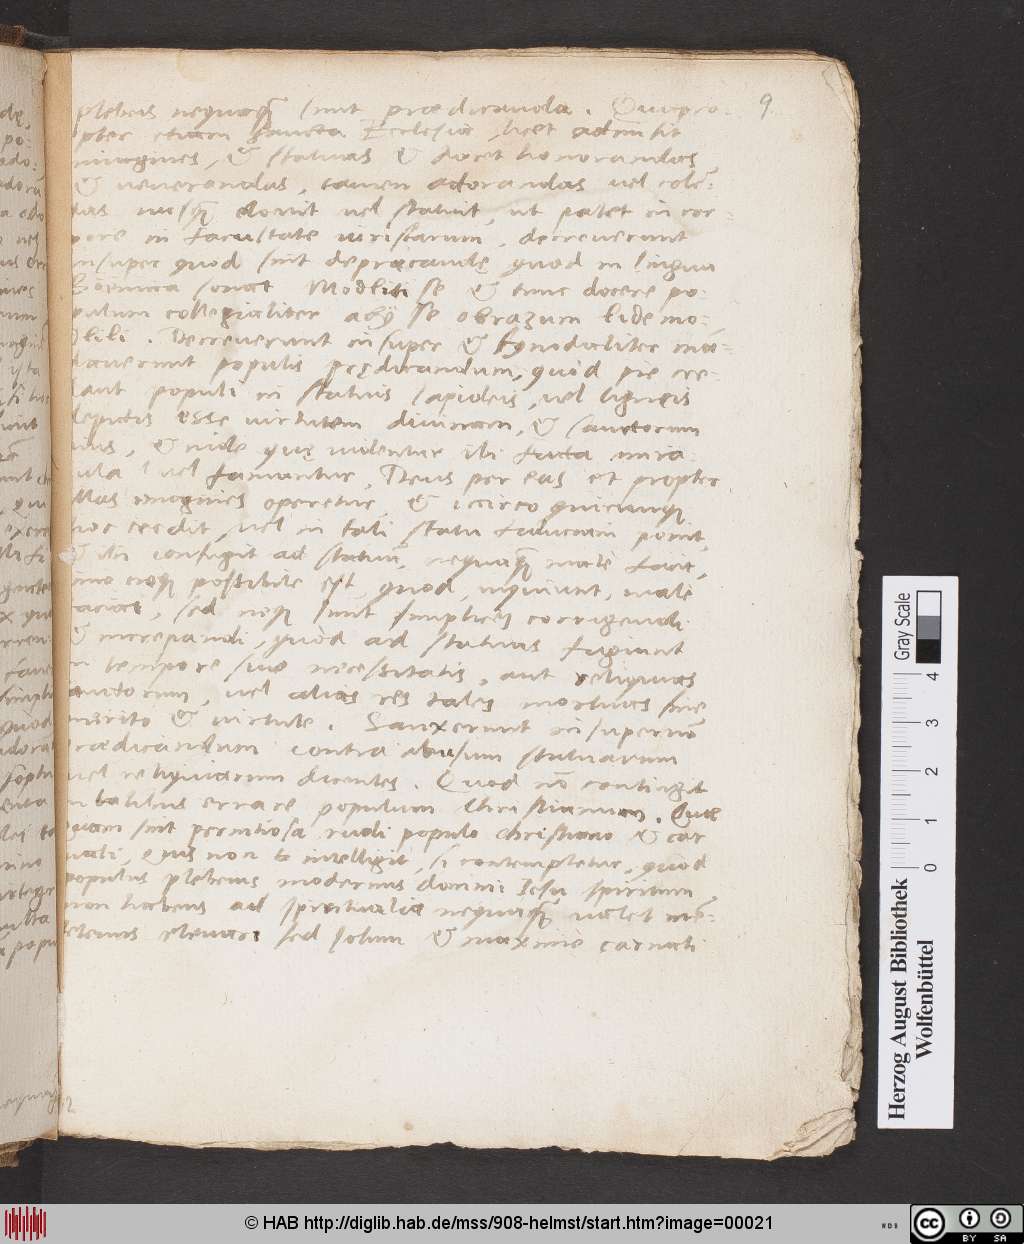 9
plebeis nequaq̃ sunt prædicanda. Quapro-
pter etiam sancta Ecclesia, licet admisit
imagines, & statuas & docet honorandas
& venerandas, tamen adorandas vel colẽ-
das nusq̃ docuit vel statuit, ut patet in cor-
pore in facultate iuristarum, decreverunt
insuper quod sint deprecandę quod in lingua
Boemica sonat Modliti se & tunc docere po-
pulum collegialiter aby se obrazum lide mo-
dlili. Decreverunt insuper & synodaliter man-
daverunt populis pędicandum, quod pie cre-
dant populi in statuis lapideis, vel ligneis
depictis esse virtutem divinam, & sanctorum
eius, & inde quę videntur ibi facta mira-
cula vel famantur, Deus per eas et propter
illas imagines operetur, & iccirco quicunque
hoc credit, vel in tali statu fiduciam ponit,
& ibi confugit ad statuã, nequaq̃ male facit,
imo neque possibile est, quod, inquiunt, male
faciat, sed neque sunt simplices corrigendi
& increpandi, quod ad statuas fugiunt
in tempore suæ necessitatis, aut reliquias
sanctorum, vel alias res tales mortuas sine
merito & virtute. Sanxerunt insuper nõ
prædicandum contra abusum statuarum
vel reliquiarum dicentes. Quod nõ contingit
in talibus errare populum Christianum. Quæ
quam sint pernitiosa rudi populo christiano & car
nali, quis non intelligit, si contempletur, quod
populus plebeius modernus domini Jesu spiritum
non habens ad spiritualia nequaq̃ valet mẽ-
te elevari sed solum & maxime carnali
Herzog August Bibliothek
Wolfenbüttel
0 1 2 3 4
Gray Scale
© HAB http://diglib.hab.de/mss/908-helmst/start.htm?image=00021
WDB
cc BY SA